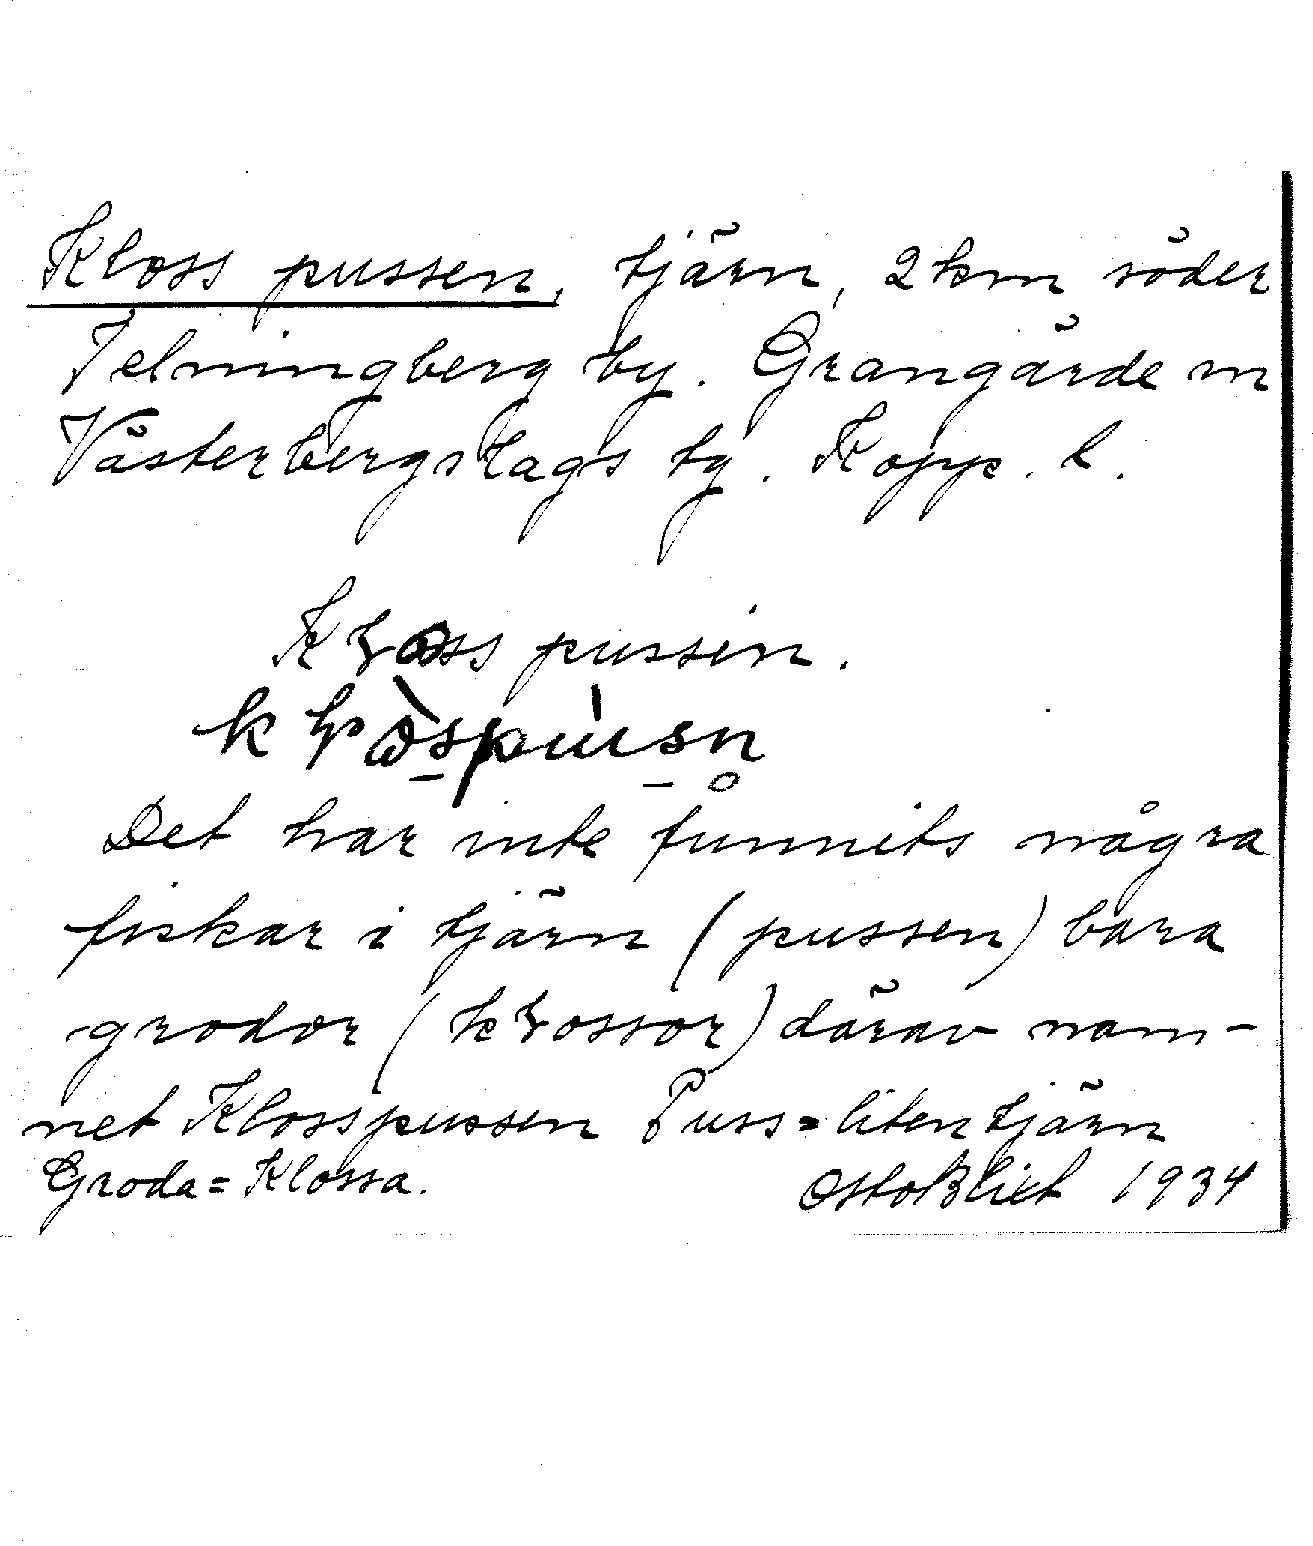 Kloss pussen, tjärn, 2 km söder
Jelningberg by. Grangärde sn
Västerbergslags tg. Kopp. l.
Kɽoss pussin.
Det har inte funnits några
fiskar i tjärn (pussen) bara
grodor (kɽossor) därav nam-
net Klosspussen Puss=liten tjärn
Groda=Klossa.
Otto Blixt 1934